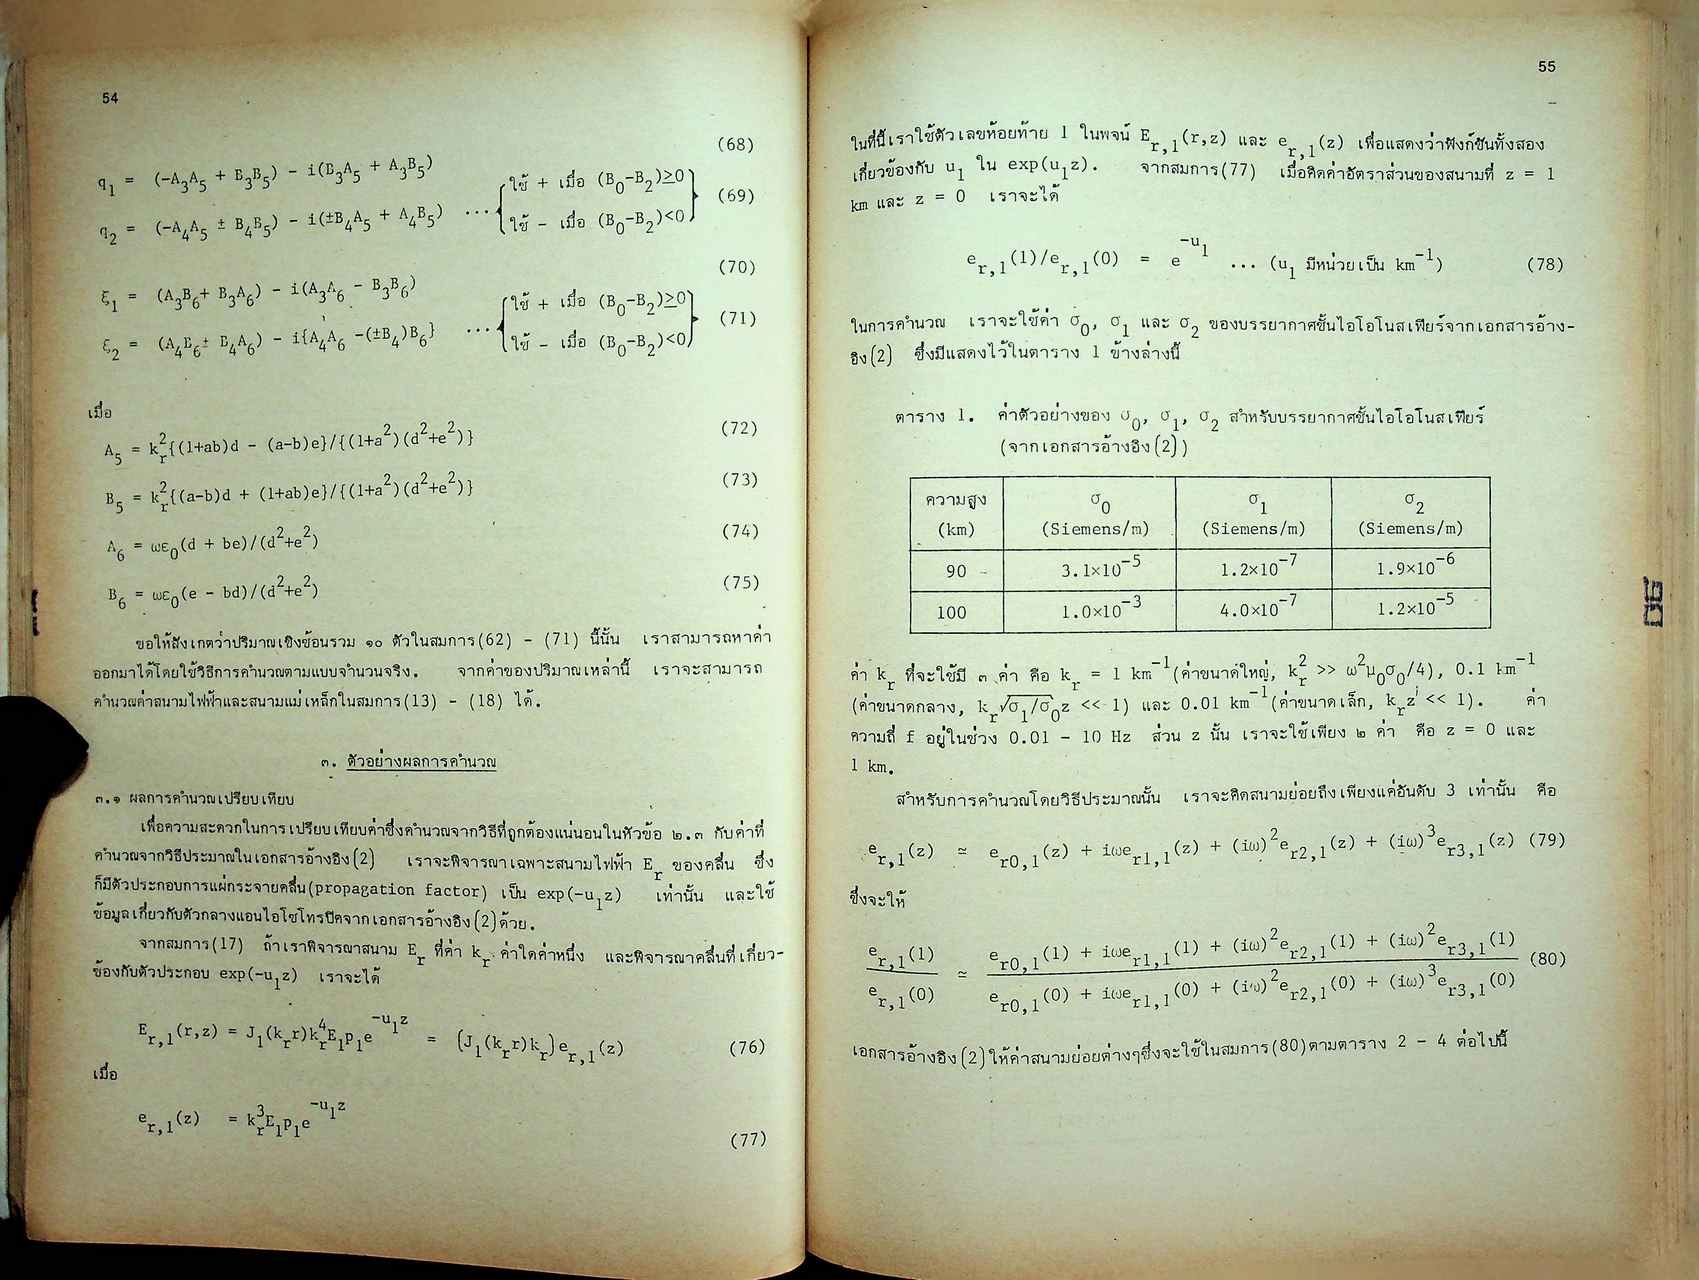 54
(68)
q₁ = (-A₃A₅ + B₃B₅) - i(B₃A₅ + A₃B₅)
ใช้ + เมื่อ (B₀-B₂)≥0
(69)
q₂ = (-A₄A₅ ± B₄B₅) - i(±B₄A₅ + A₄B₅) ...
ใช้ - เมื่อ (B₀-B₂)<0
(70)
ξ₁ = (A₃B₆+ B₃A₆) - i(A₃A₆ - B₃B₆)
ใช้ + เมื่อ (B₀-B₂)≥0
(71)
ξ₂ = (A₄B₆± B₄A₆) - i{A₄A₆ -(±B₄)B₆} ...
ใช้ - เมื่อ (B₀-B₂)<0
เมื่อ
A₅ = k_r²{(1+ab)d - (a-b)e}/{(1+a²)(d²+e²)} (72)
B₅ = k_r²{(a-b)d + (1+ab)e}/{(1+a²)(d²+e²)} (73)
A₆ = ωε₀(d + be)/(d²+e²) (74)
B₆ = ωε₀(e - bd)/(d²+e²) (75)
ขอให้สังเกตว่าปริมาณเชิงซ้อนรวม ๑๐ ตัวในสมการ(62) - (71) นี้นั้น เราสามารถหาค่า
ออกมาได้โดยใช้วิธีการคำนวณตามแบบจำนวนจริง. จากค่าของปริมาณเหล่านี้ เราจะสามารถ
คำนวณค่าสนามไฟฟ้าและสนามแม่เหล็กในสมการ(13) - (18) ได้.
๓. ตัวอย่างผลการคำนวณ
๓.๑ ผลการคำนวณเปรียบเทียบ
เพื่อความสะดวกในการเปรียบเทียบค่าซึ่งคำนวณจากวิธีที่ถูกต้องแน่นอนในหัวข้อ ๒.๓ กับค่าที่
คำนวณจากวิธีประมาณในเอกสารอ้างอิง(2) เราจะพิจารณาเฉพาะสนามไฟฟ้า E_r ของคลื่น ซึ่ง
ก็มีตัวประกอบการแผ่กระจายคลื่น(propagation factor) เป็น exp(-u₁z) เท่านั้น และใช้
ข้อมูลเกี่ยวกับตัวกลางแอนไอโซโทรปิคจากเอกสารอ้างอิง(2)ด้วย.
จากสมการ(17) ถ้าเราพิจารณาสนาม E_r ที่ค่า k_r ค่าใดค่าหนึ่ง และพิจารณาคลื่นที่เกี่ยว-
ข้องกับตัวประกอบ exp(-u₁z) เราจะได้
E_r,1(r,z) = J₁(k_r r)k_r⁴E₁p₁e^(-u₁z) = (J₁(k_r r)k_r)e_r,1(z) (76)
เมื่อ
e_r,1(z) = k_r³E₁p₁e^(-u₁z)
(77)
55
ในที่นี้เราใช้ตัวเลขห้อยท้าย 1 ในพจน์ E_r,1(r,z) และ e_r,1(z) เพื่อแสดงว่าฟังก์ชันทั้งสอง
เกี่ยวข้องกับ u₁ ใน exp(u₁z). จากสมการ(77) เมื่อคิดค่าอัตราส่วนของสนามที่ z = 1
km และ z = 0 เราจะได้
e_r,1(1)/e_r,1(0) = e^(-u₁) ... (u₁ มีหน่วยเป็น km⁻¹) (78)
ในการคำนวณ เราจะใช้ค่า σ₀, σ₁ และ σ₂ ของบรรยากาศชั้นไอโอโนสเฟียร์จากเอกสารอ้าง-
อิง(2) ซึ่งมีแสดงไว้ในตาราง 1 ข้างล่างนี้
ตาราง 1. ค่าตัวอย่างของ σ₀, σ₁, σ₂ สำหรับบรรยากาศชั้นไอโอโนสเฟียร์
(จากเอกสารอ้างอิง(2))
ความสูง σ₀ σ₁ σ₂
(km) (Siemens/m) (Siemens/m) (Siemens/m)
90 3.1×10⁻⁵ 1.2×10⁻⁷ 1.9×10⁻⁶
100 1.0×10⁻³ 4.0×10⁻⁷ 1.2×10⁻⁵
ค่า k_r ที่จะใช้มี ๓ ค่า คือ k_r = 1 km⁻¹(ค่าขนาดใหญ่, k_r² >> ω²μ₀σ₀/4), 0.1 km⁻¹
(ค่าขนาดกลาง, k_r√σ₁/σ₀z << 1) และ 0.01 km⁻¹(ค่าขนาดเล็ก, k_r z << 1). ค่า
ความถี่ f อยู่ในช่วง 0.01 - 10 Hz ส่วน z นั้น เราจะใช้เพียง ๒ ค่า คือ z = 0 และ
1 km.
สำหรับการคำนวณโดยวิธีประมาณนั้น เราจะคิดสนามย่อยถึงเพียงแค่อันดับ 3 เท่านั้น คือ
e_r,1(z) ≃ e_r0,1(z) + iωe_r1,1(z) + (iω)²e_r2,1(z) + (iω)³e_r3,1(z) (79)
ซึ่งจะให้
e_r,1(1) e_r0,1(1) + iωe_r1,1(1) + (iω)²e_r2,1(1) + (iω)³e_r3,1(1)
≃ (80)
e_r,1(0) e_r0,1(0) + iωe_r1,1(0) + (iω)²e_r2,1(0) + (iω)³e_r3,1(0)
เอกสารอ้างอิง(2)ให้ค่าสนามย่อยต่างๆซึ่งจะใช้ในสมการ(80)ตามตาราง 2 - 4 ต่อไปนี้